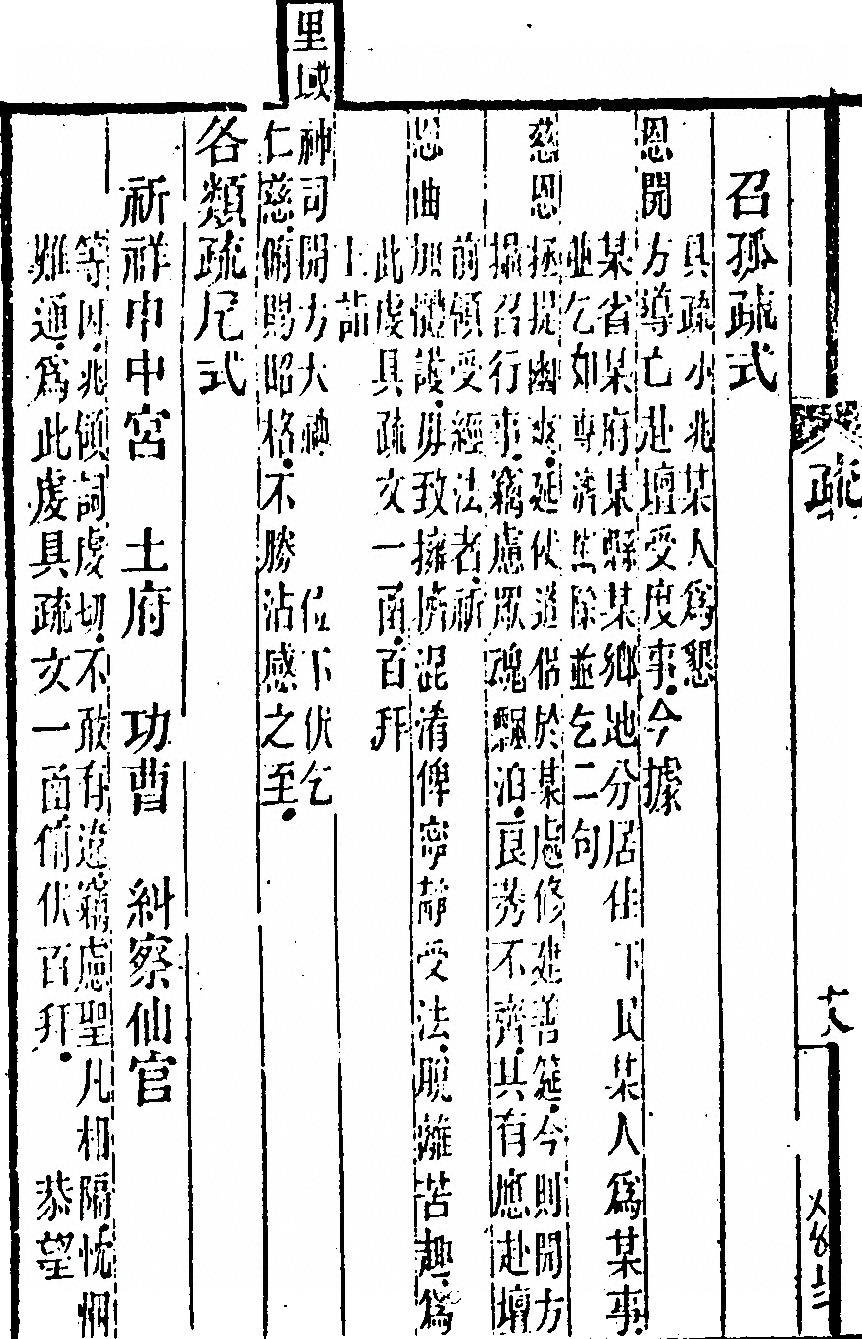 疏
十八
召孤疏式
具疏小兆某人爲懇
恩開方導亡赴壇受度事今據
某省某府某縣某鄉地分居住下民某人爲某事
並乞如專薦焦除並乞二句
慈恩拯提幽爽延伏道侶於某處修建善筵今則開方
攝召行事竊慮眾魂飄泊良莠不齊其有應赴壇
前領受經法者祈
恩曲加憫護毋致擁擠混淆俾寧靜受法脫離苦趣爲
此虔具疏文一函百拜
上詣
里域神司開方大神 位下伏乞
仁慈俯賜昭格不勝沾感之至
各類疏尾式
祈祥申中宮 土府 功曹 糾察仙官
等因兆傾詞虔切不敢有違竊慮聖凡相隔恍惘
難通爲此虔具疏文一函俯伏百拜 恭望